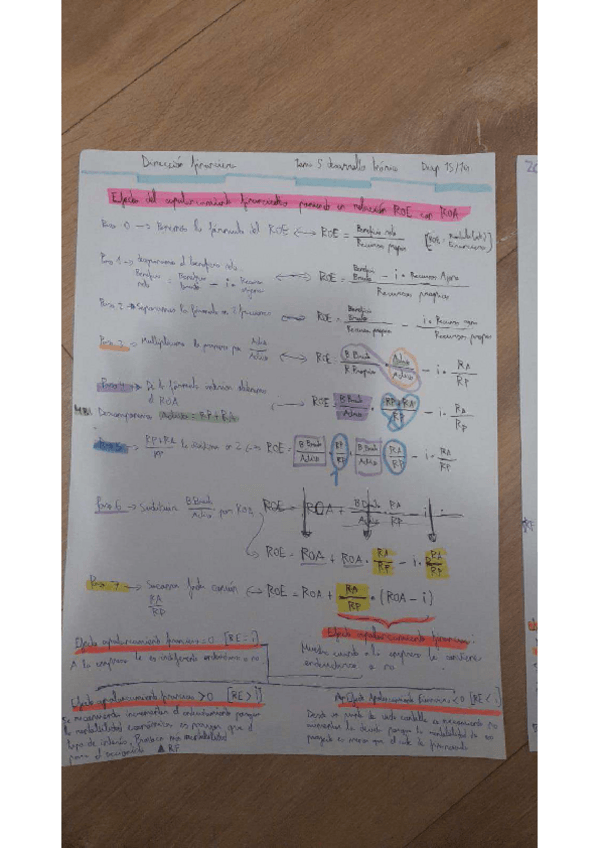 Dirección financiera Tema 5 desarrollo teórico Diap 15/16
Efecto del apalancamiento financiero poniendo en relación ROE con ROA
Paso 0 → la fórmula del ROE ↔ ROE = Beneficio neto / Recursos propios [ROE = Rentabilidad financiera]
Paso 1 → el beneficio neto
Beneficio = Beneficio Bruto - i · Recursos ajenos ↔ ROE = Beneficio Bruto - i · Recursos Ajenos / Recursos propios
Paso 2 → Separamos la fórmula en 2 fracciones ↔ ROE = Beneficio Bruto / Recursos propios - i · Recursos ajenos / Recursos propios
Paso 3 → Multiplicamos la primera por Activo / Activo ↔ ROE = B Bruto / R Propios · Activo / Activo - i · RA / RP
Paso 4 → De la fórmula anterior obtenemos el ROA
ROE = B Bruto / Activo · RP+RA / RP - i · RA / RP
Descomponemos Activo = RP+RA
Paso 5 → RP+RA / RP lo en 2 ↔ ROE = B Bruto / Activo · RP / RP + B Bruto / Activo · RA / RP - i · RA / RP
1
Paso 6 → Sustituimos B Bruto / Activo por ROA ROE = ROA + B Bruto / Activo RA / RP - i
ROE = ROA + ROA · RA / RP - i · RA / RP
Paso 7 → Sacamos factor común RA / RP ↔ ROE = ROA + RA / RP · (ROA - i)
Efecto apalancamiento financiero
Muestra cuando a la empresa le conviene endeudarse o no
Efecto apalancamiento financiero = 0 [RE = i]
A la empresa le es indiferente endeudarse o no
Efecto apalancamiento financiero > 0 [RE > i]
Es recomendable incrementar el endeudamiento porque
la rentabilidad económica es mayor que el
tipo de interés. Produce más rentabilidad
para el accionista ▲ RF
Efecto Apalancamiento financiero < 0 [RE < i]
Desde un punto de vista contable es recomendable no
incrementar la deuda porque la rentabilidad de un
proyecto es menor que el coste de financiarlo